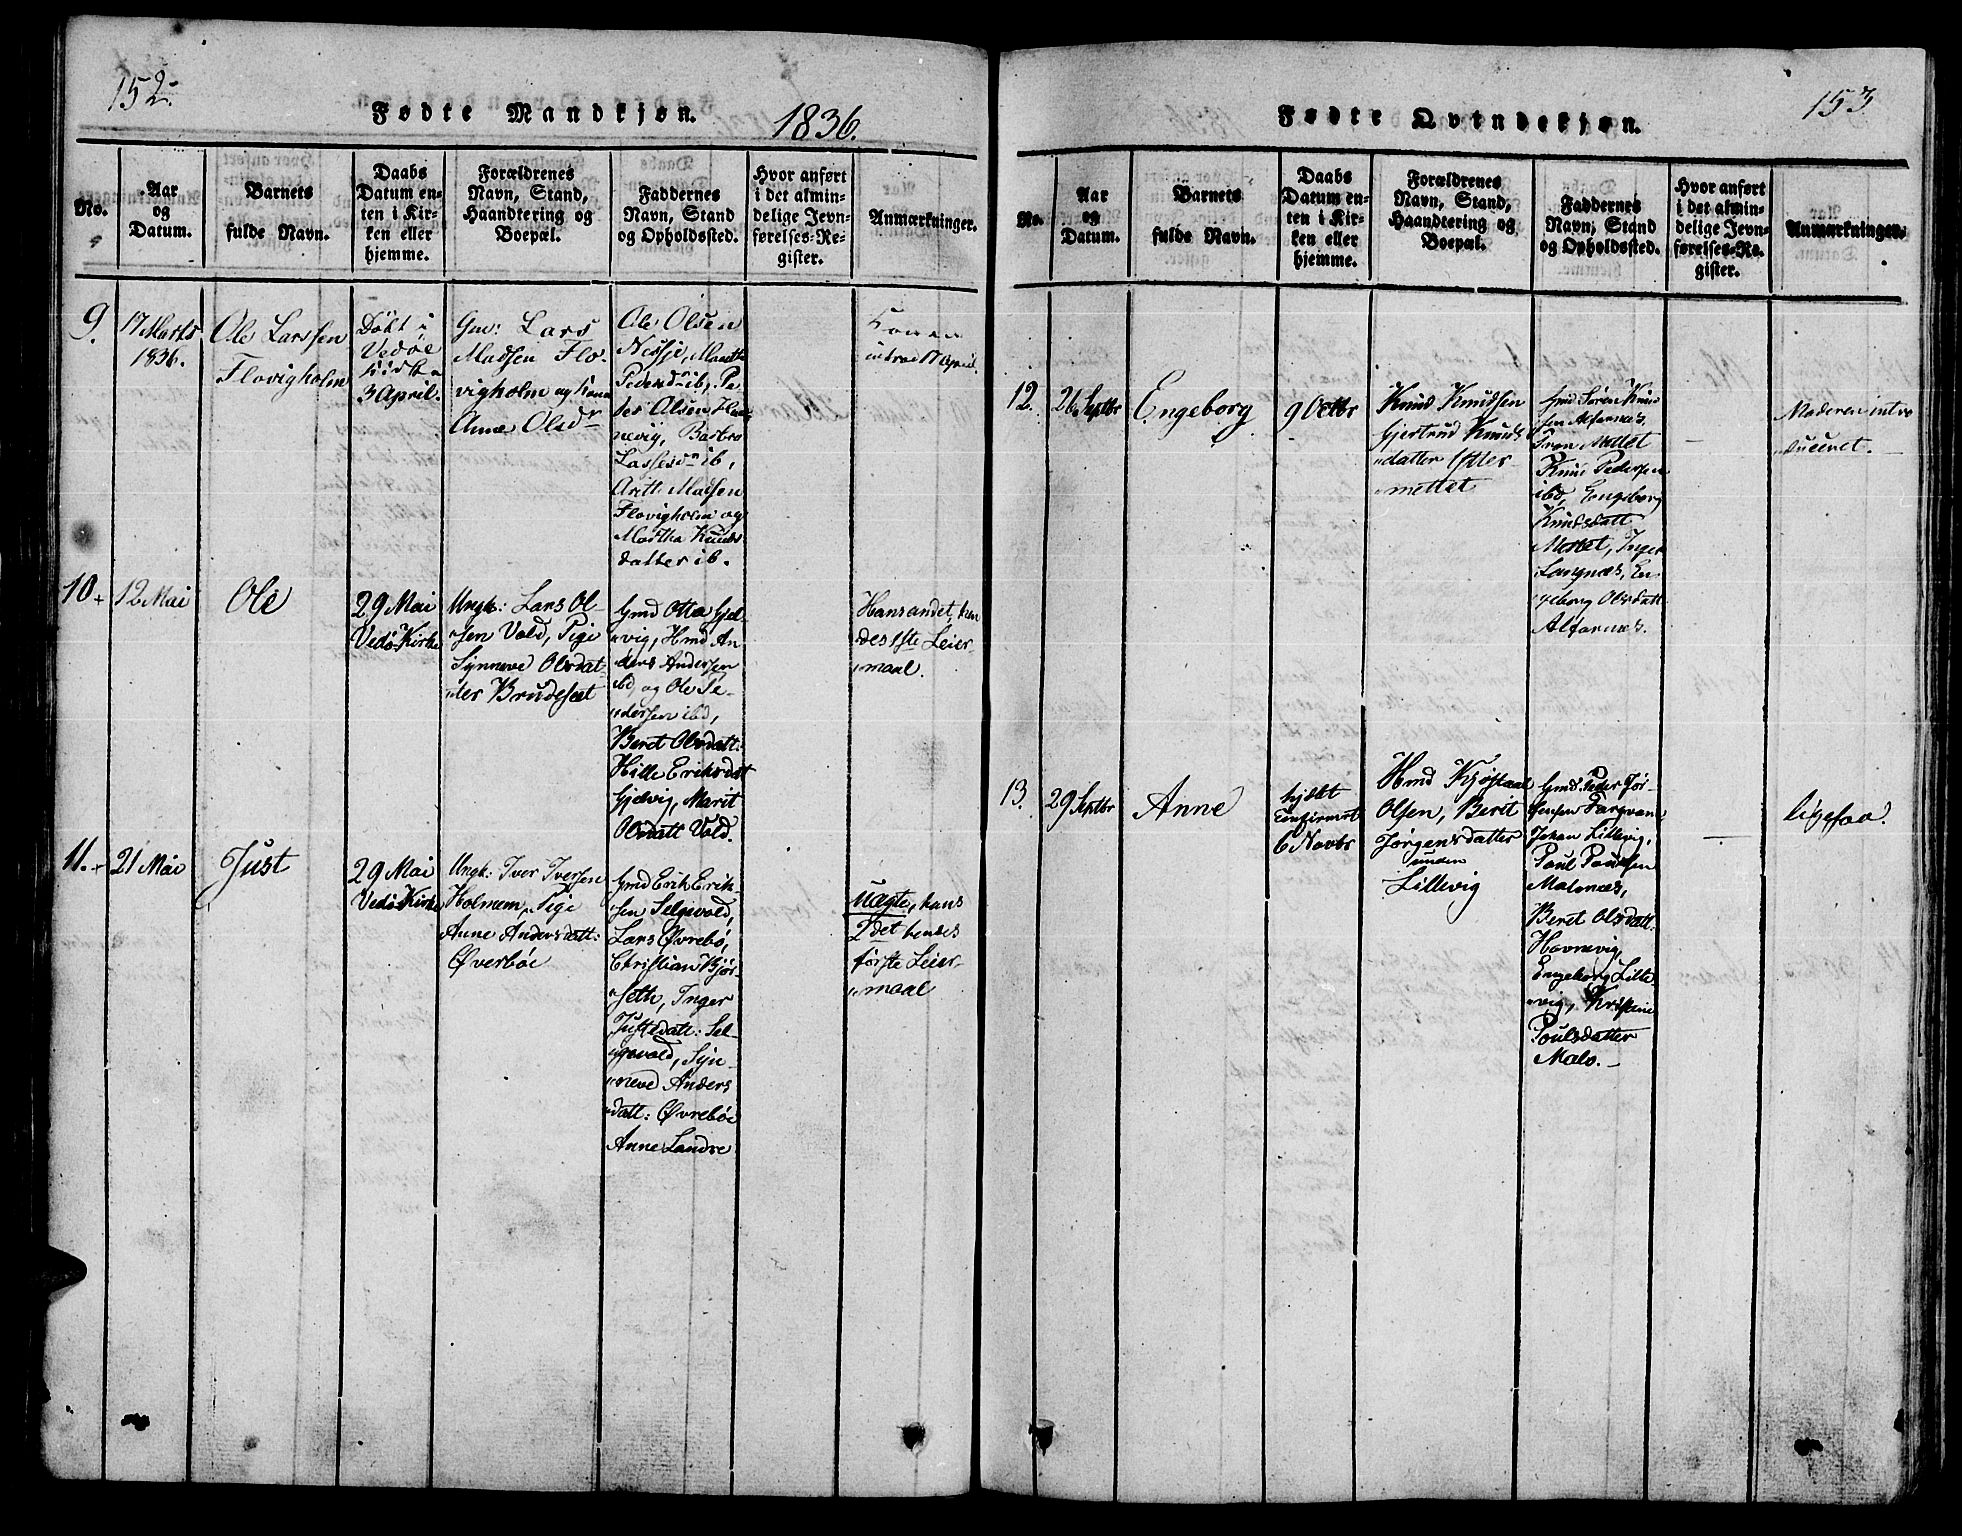 152.
Fødte Mandkjøn.
1836.
No.
Aar
og
Datum.
Barnets
fulde Navn.
Daabs
Datum en-
ten i Kir-
ken eller
hjemme.
Forældrenes
Navn, Stand,
Haandtering og
Boepæl.
Faddernes
Navn, Stand
og Opholdssted.
Hvor anført
i det almin-
delige Jevn-
førelses-Re-
gister.
Anmærkninger.
9.
17 Marts
1836.
Ole Larssen
Flovigholm
Døbt i
Vedøe
Kirke
3 April.
Gm: Lars
Madsen Flo-
vigholm og Kone
Anne Olsdr
Ole Olsen
Nesje, Marith
Pedersdr ib, Pe-
der Olsen
Barbro
Lassesdr ib,
Madsen
Flovigholm og
Martha Knuds
datter ib.
Konen
introd 17 April.
10.
12 Mai
Ole
29 Mai
Vedø Kirke
Ungk: Lars Ol-
sen Vold, Pige
Synneve Olsdat-
ter Brudesæt
Gmd Otto Gjel-
vig, Hmd An-
ders Andersen
ibd, og Ole Pe-
dersen ibd,
Beret Olsdatt:
Hille Eriksdat
Gjelvig, Marit
Olsdatt Vold.
Hans andet, hen
des 1ste Leier-
maal.
11.
21 Mai
Just
29 Mai
Vedø Kirke
Ungk: Iver Iversen
Holmem, Pige
Anne Andersdatt:
Øverbøe
Gmd Erik Erik-
sen Selgevold,
Lars Øvrebø,
Christian Bjør-
seth, Inger
Justedatt: Sel-
gevold, Syn-
neve Anders
datt: Øvrebøe
Anne Sandre
Uægte, hans
2det hendes
første Leier-
maal
153
Fødte Qvindekjøn.
No.
Aar
og
Datum.
Barnets
fulde Navn.
Daabs
Datum en-
ten i Kir-
ken eller
hjemme.
Forældrenes
Navn, Stand,
Haandtering og
Boepæl.
Faddernes
Navn, Stand
og Opholdssted.
Hvor anført
i det almin-
delige Jevn-
førelses-Re-
gister.
Anmærkninger.
12.
26 Septbr
Engeborg
9 Octbr
Knud Knudsen
Gjertrud Knuds
datter Ytter-
mettet
Gmd Søren Knud
sen Alfarnæs,
Iver Mettet
Knud Pedersen
ibd, Engeborg
Knudsdatt
Mettet, Inger
Langnæs, En-
geborg Olsdatt
Alfarnæs.
—
Moderen intro
duceret.
13.
29 Septbr
Anne
hjdbt
Confirmert
6 Novbr
Hmd Kjøstael
Olsen, Berit
Jørgensdatter
unden
Lillevig
Gmd Peder Jør-
gensen
Johan Lillevig,
Poul Poulsen
Malmæs,
Beret Olsdatt
Hovnevig,
Engeborg Lille-
vig, Kristine
Poulsdatter
Malo.
—
ligesaa.